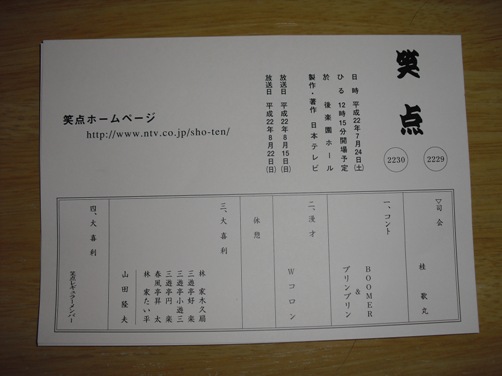 笑点
2229
2230
日時 平成22年7月24日(土)
ひる 12時15分開場予定
於 後楽園ホール
製作・著作 日本テレビ
放送日 平成22年8月15日(日)
放送日 平成22年8月22日(日)
笑点ホームページ
http://www.ntv.co.jp/sho-ten/
▽司会 桂歌丸
一、コント BOOMER
&
プリンプリン
二、漫才 Wコロン
休憩
三、大喜利 林家木久扇
三遊亭好楽
三遊亭小遊三
三遊亭円楽
春風亭昇太
林家たい平
山田隆夫
四、大喜利 笑点レギュラーメンバー